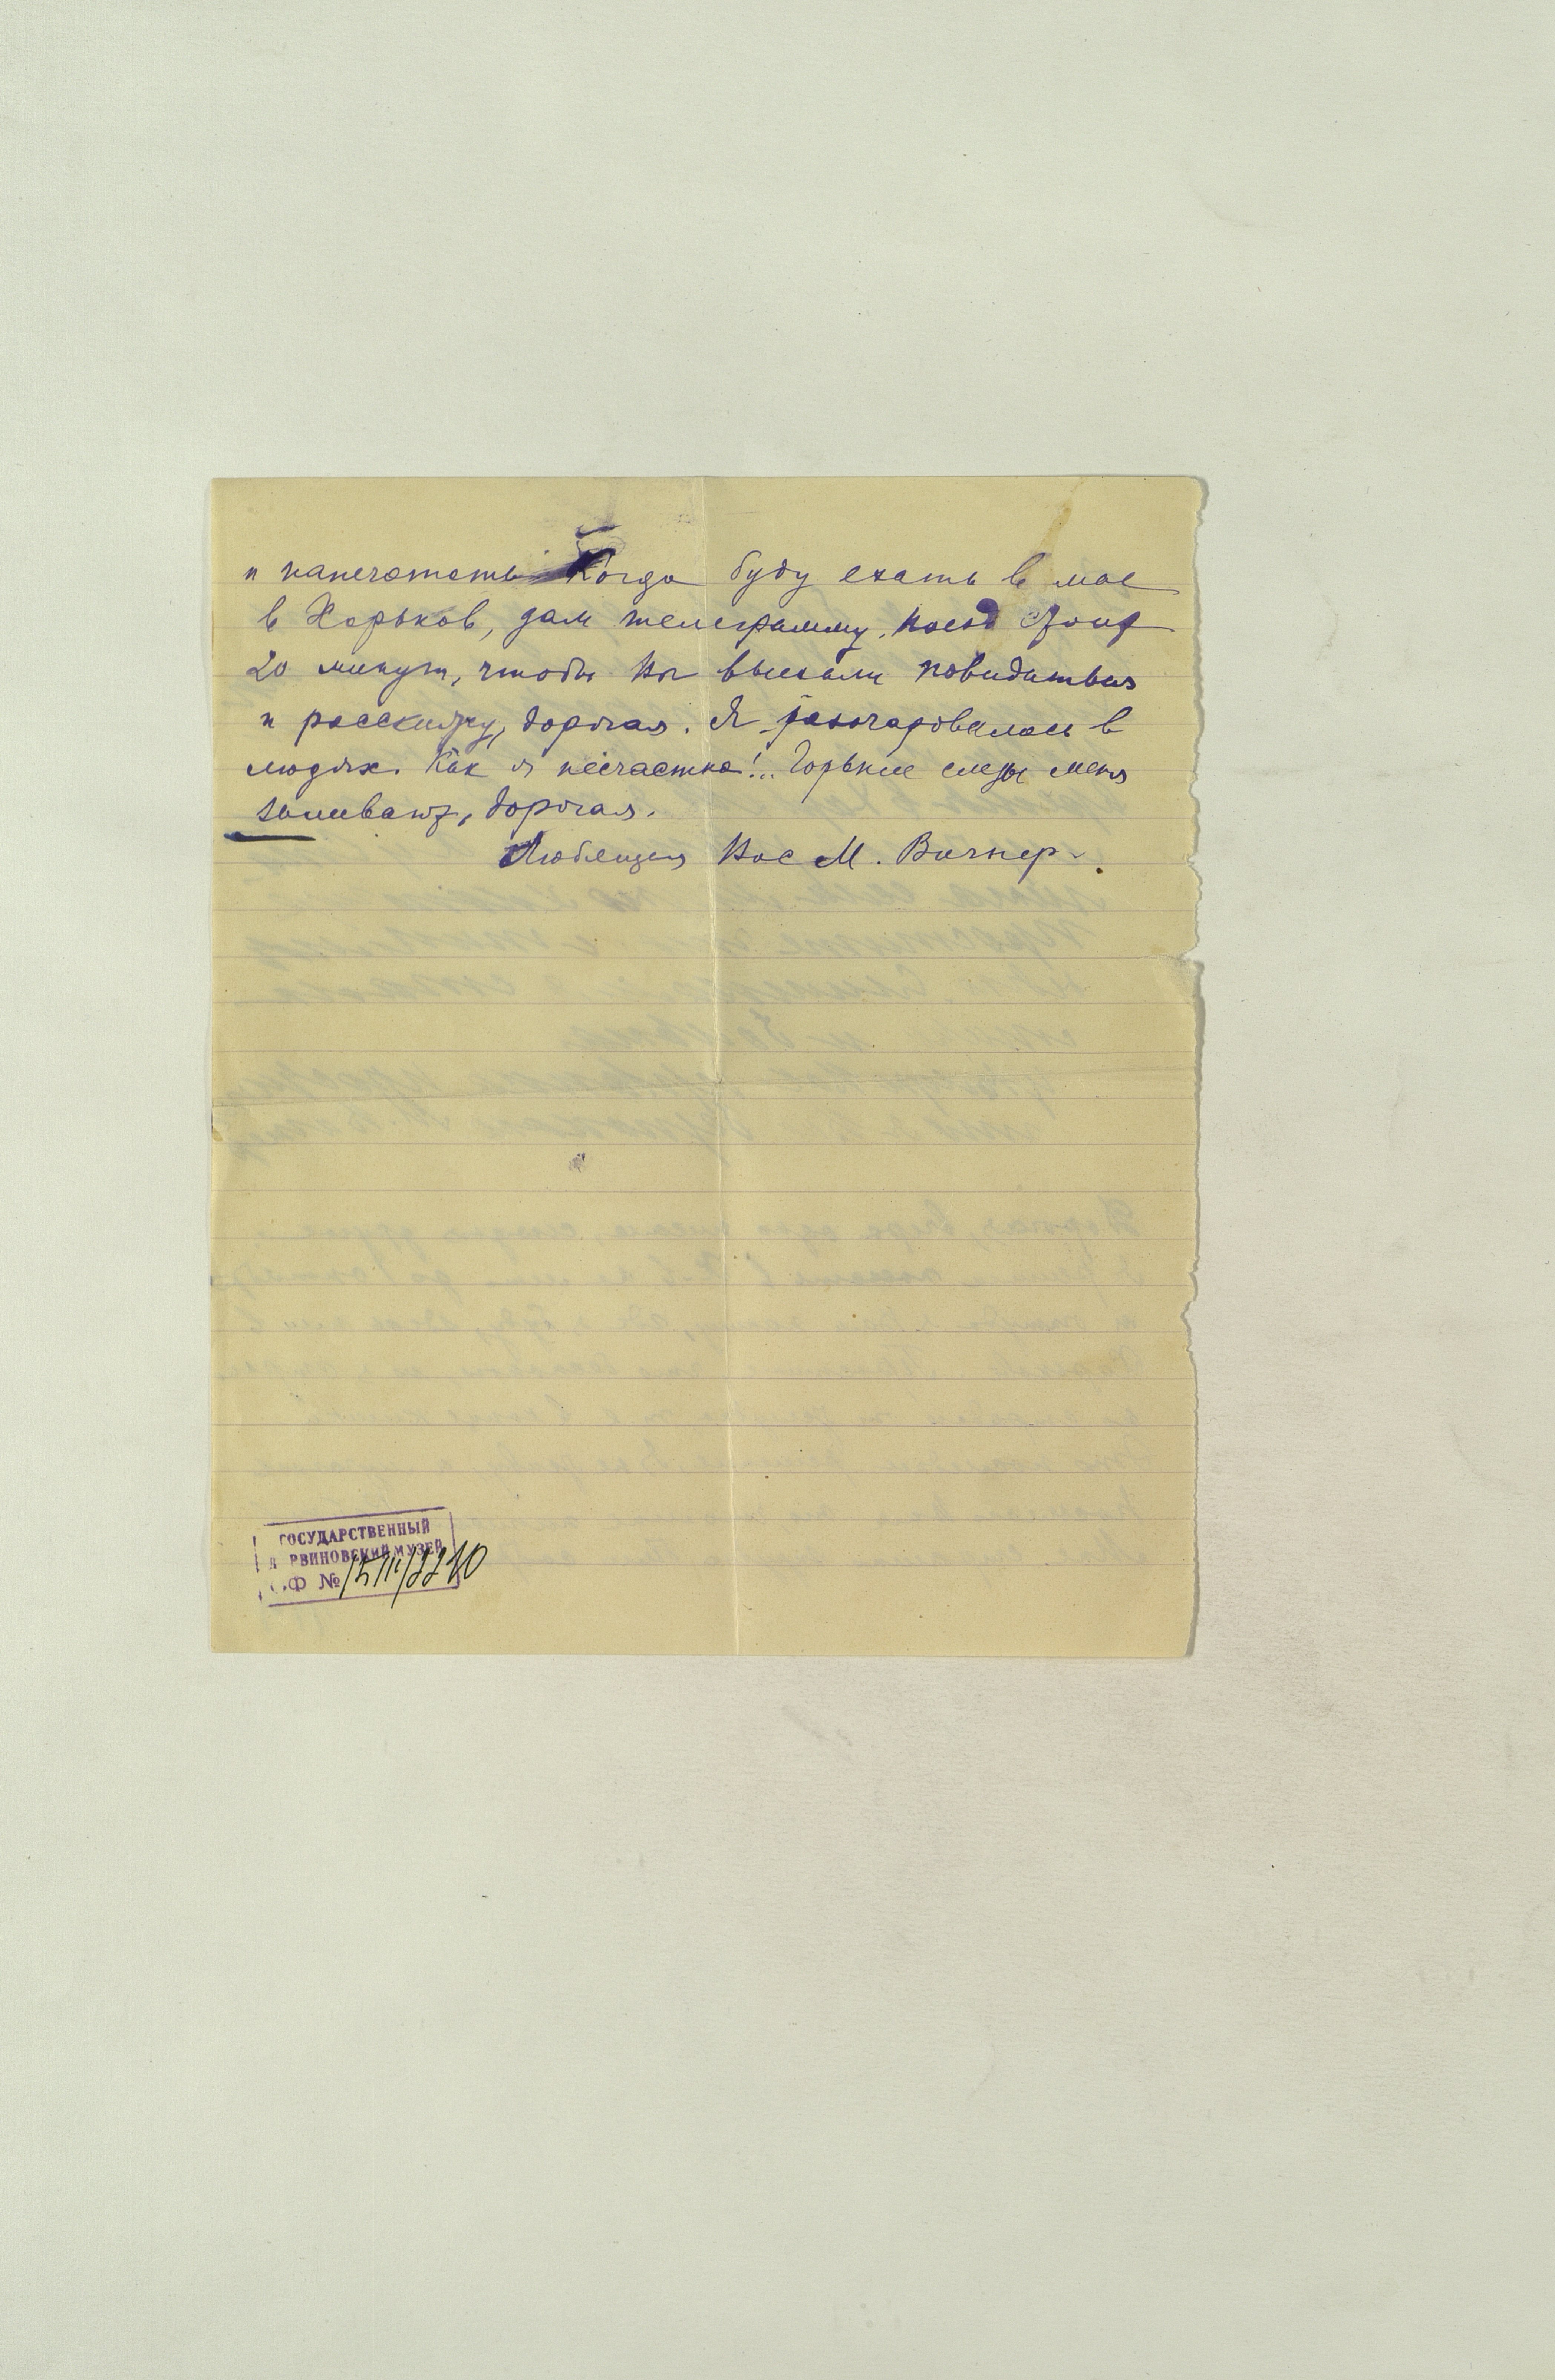 и напечатать. Когда буду ехать в мае
в Харьков, дам телеграмму, поезд стоит
20 минут, чтобы Вы выехали повидаться
и расскажу, дорогая. Я разочаровалась в
людях. Как я несчастна!.. Горькие слезы меня
заливают, дорогая.
Любящая Вас М. Вагнер.
ГОСУДАРСТВЕННЫЙ
РВИНОВСКИЙ МУЗЕЙ
Ф №